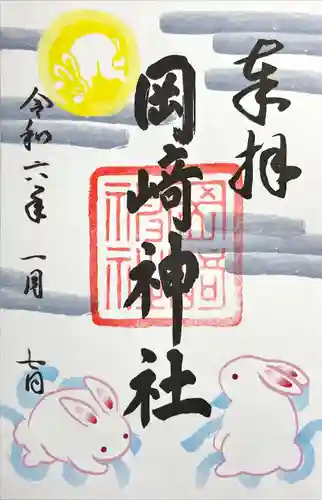 奉拝
岡崎神社
岡崎神社
令和六年 一月 七日